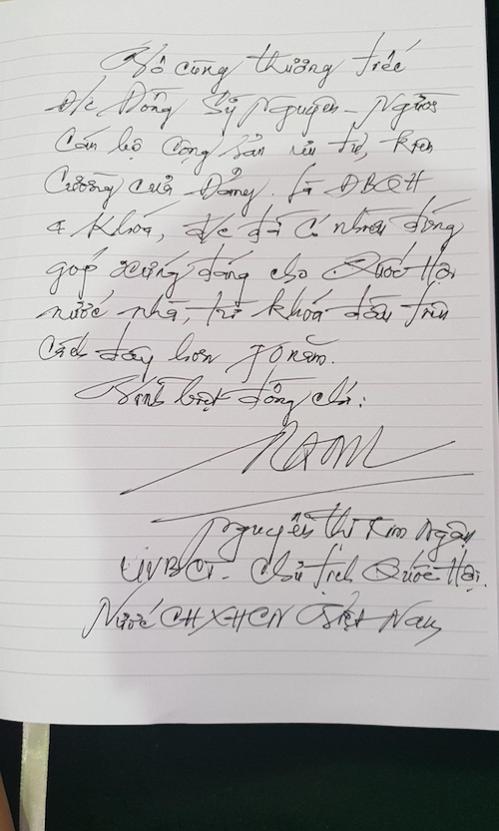 Vô cùng thương tiếc
đ/c Đồng Sỹ Nguyên - Người
cán bộ Cộng sản ưu tú, kiên
cường của Đảng. Là ĐBQH
4 khóa, đ/c đã có nhiều đóng
góp xứng đáng cho Quốc Hội
nước nhà, từ khóa đầu tiên
cách đây hơn 70 năm.
Vĩnh biệt đồng chí!
Nguyễn Thị Kim Ngân
UVBCT - Chủ tịch Quốc Hội
Nước CHXHCN Việt Nam